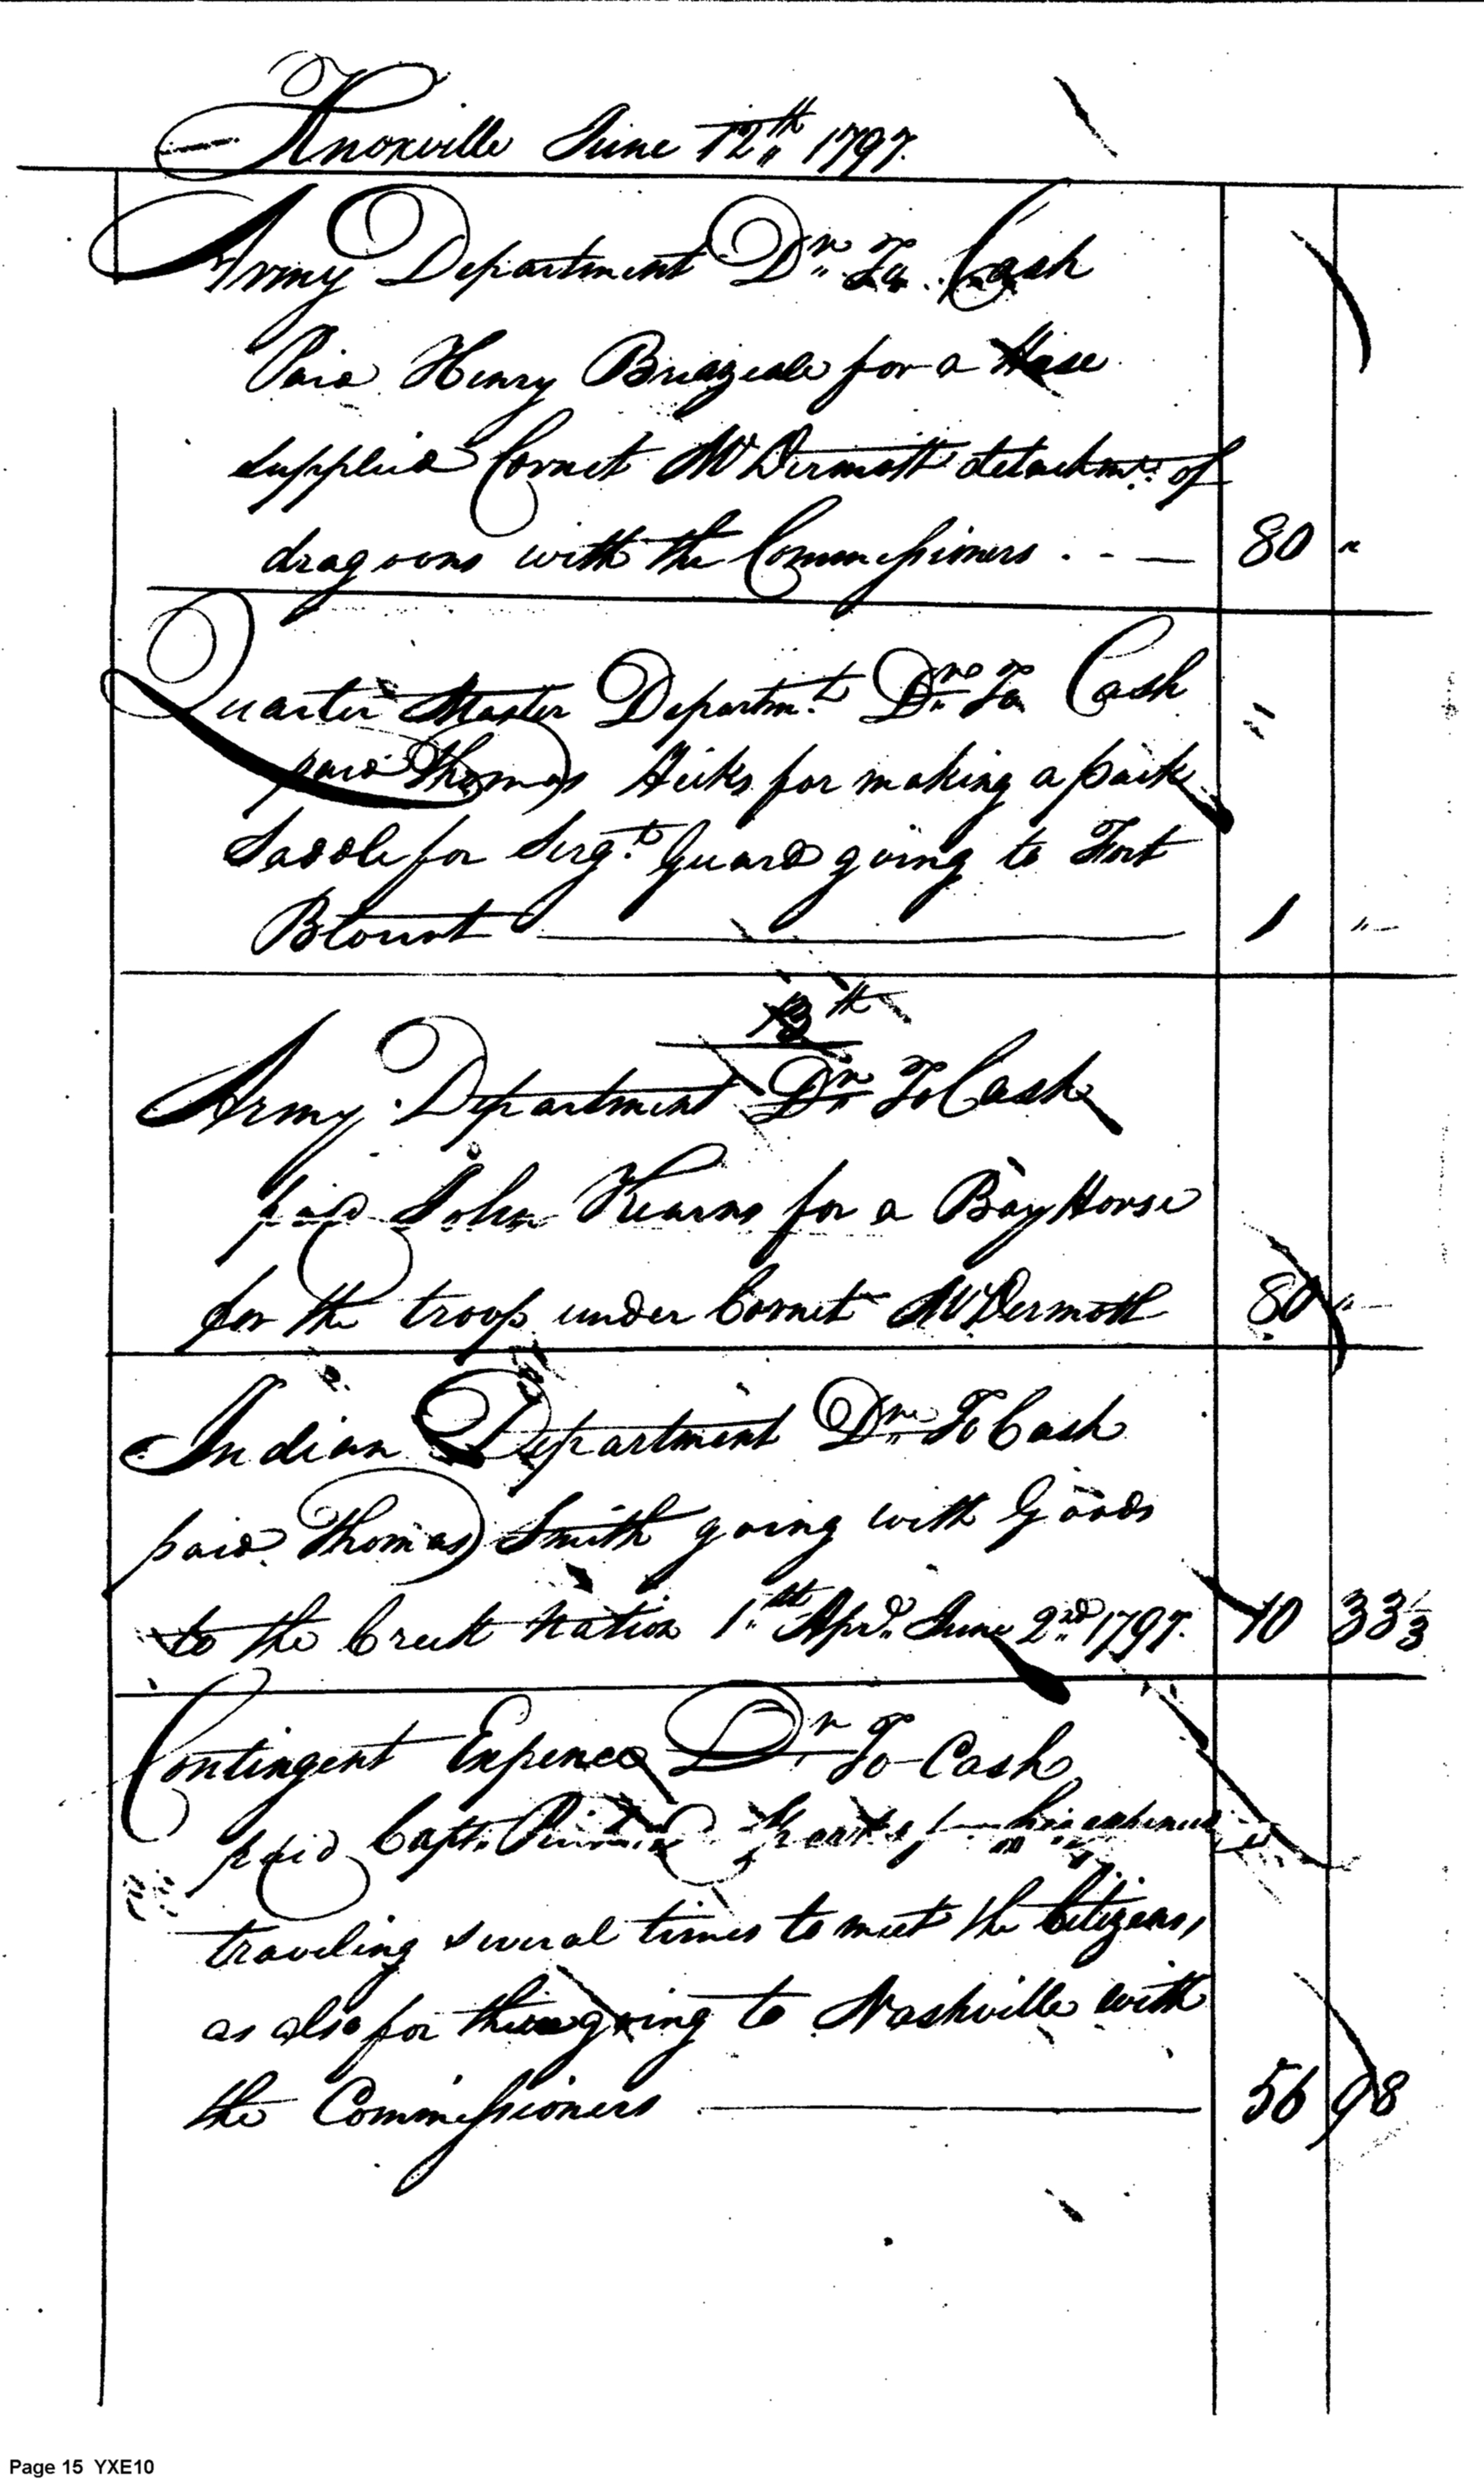 Knoxville June 12th 1797.
Army Department Dr. To Cash
Paid Henry Breazeale for a Hose
supplied Cornet McDermott detachmt. of
dragoons with the Commissioners . - — 80 "
Quarter Master Departmt. Dr. To Cash
paid Thomas Hicks for making a pack
Saddle for Sergt. Guard going to Fort
Blount 1 "
13th
Army Department Dr. To Cash
paid John Kearns for a Bay Horse
for the troop under Cornet McDermott 80 "
Indian Department Dr. To Cash
paid Thomas Smith going with Goods
to the Creek Nation 1st Apr. June 2nd 1797. 40 33 1/3
Contingent Expence Dr. To Cash
paid Capt. his expences
traveling several times to meet the Citizens,
as also for going to Nashville with
the Commissioners 56 98
Page 15 YXE10